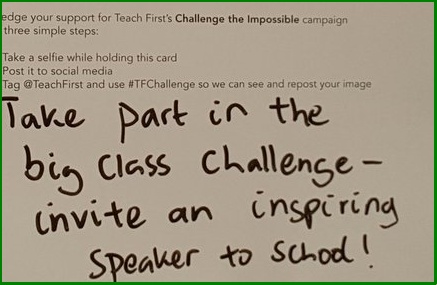 edge your support for Teach First's Challenge the Impossible campaign
three simple steps:
Take a selfie while holding this card
Post it to social media
Tag @TeachFirst and use #TFChallenge so we can see and repost your image
Take part in the
big class challenge –
invite an inspiring
speaker to school!